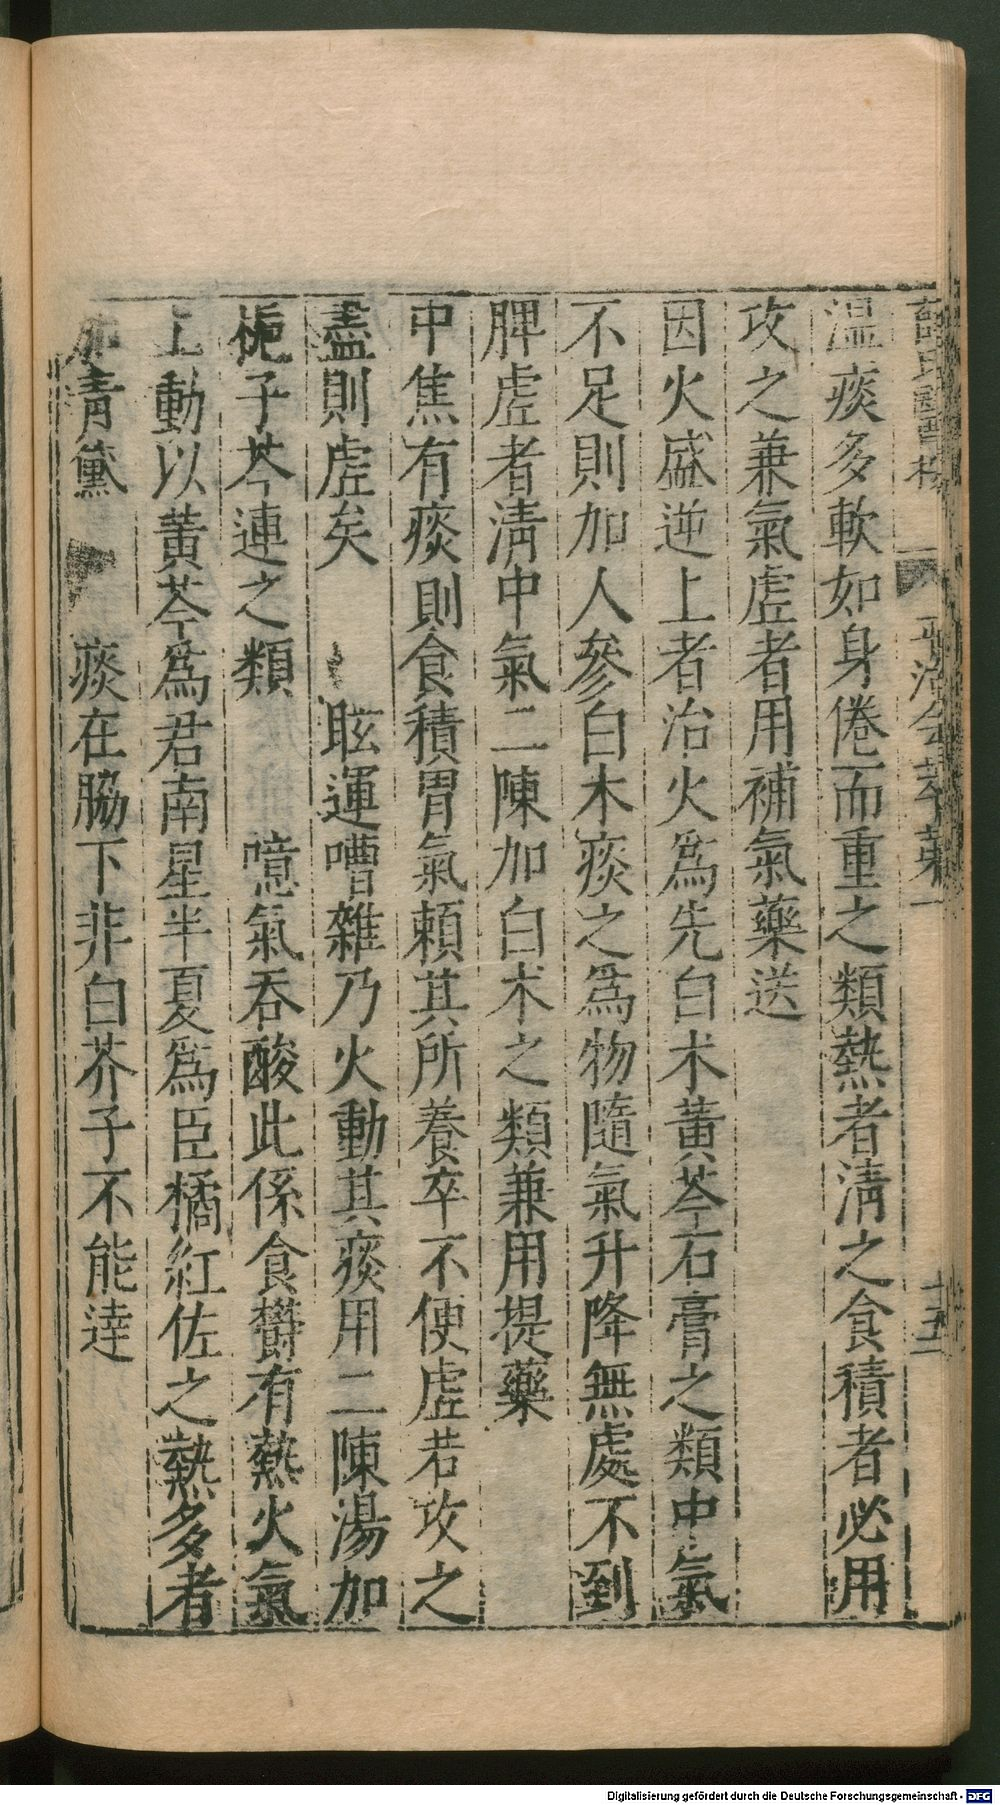 薛氏醫案 平治會萃卷一 十五
温痰多軟如身倦而重之類熱者淸之食積者必用
攻之兼氣虛者用補氣藥送
因火盛逆上者治火爲先白术黃芩石膏之類中氣
不足則加人參白术痰之爲物隨氣升降無處不到
脾虛者淸中氣二陳加白术之類兼用提藥
中焦有痰則食積胃氣賴其所養卒不便虛若攻之
盡則虛矣 眩運嘈雜乃火動其痰用二陳湯加
梔子芩連之類 噫氣吞酸此係食欝有熱火氣
上動以黃芩爲君南星半夏爲臣橘紅佐之熱多者
加靑黛 痰在脇下非白芥子不能達
Digitalisierung gefördert durch die Deutsche Forschungsgemeinschaft - DFG